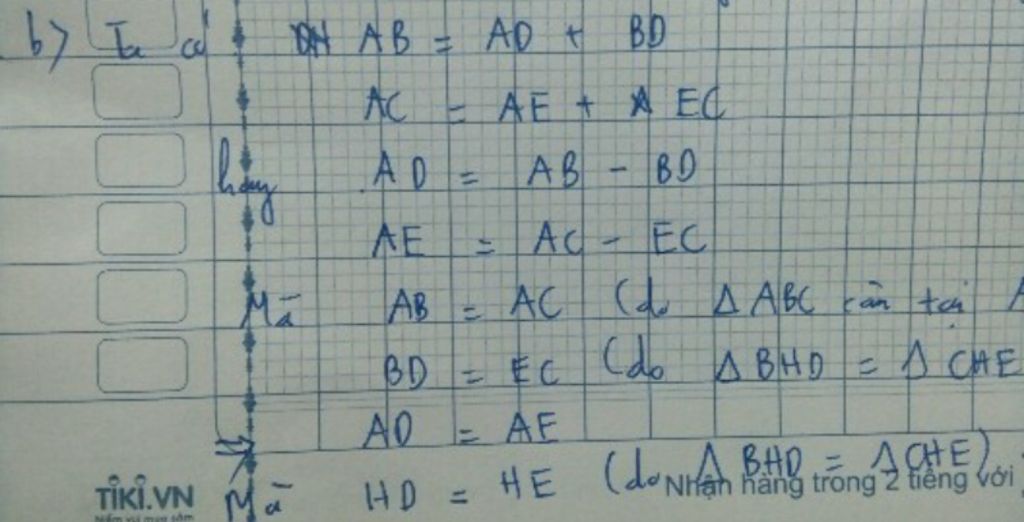 b) Ta có AB = AD + BD
AC = AE + EC
hay AD = AB - BD
AE = AC - EC
Mà AB = AC (do Δ ABC cân tại A
BD = EC (do Δ BHD = Δ CHE
⇒ AD = AE
Mà HD = HE (do Δ BHD = Δ CHE)
TIKI.VN
Nhận hàng trong 2 tiếng với